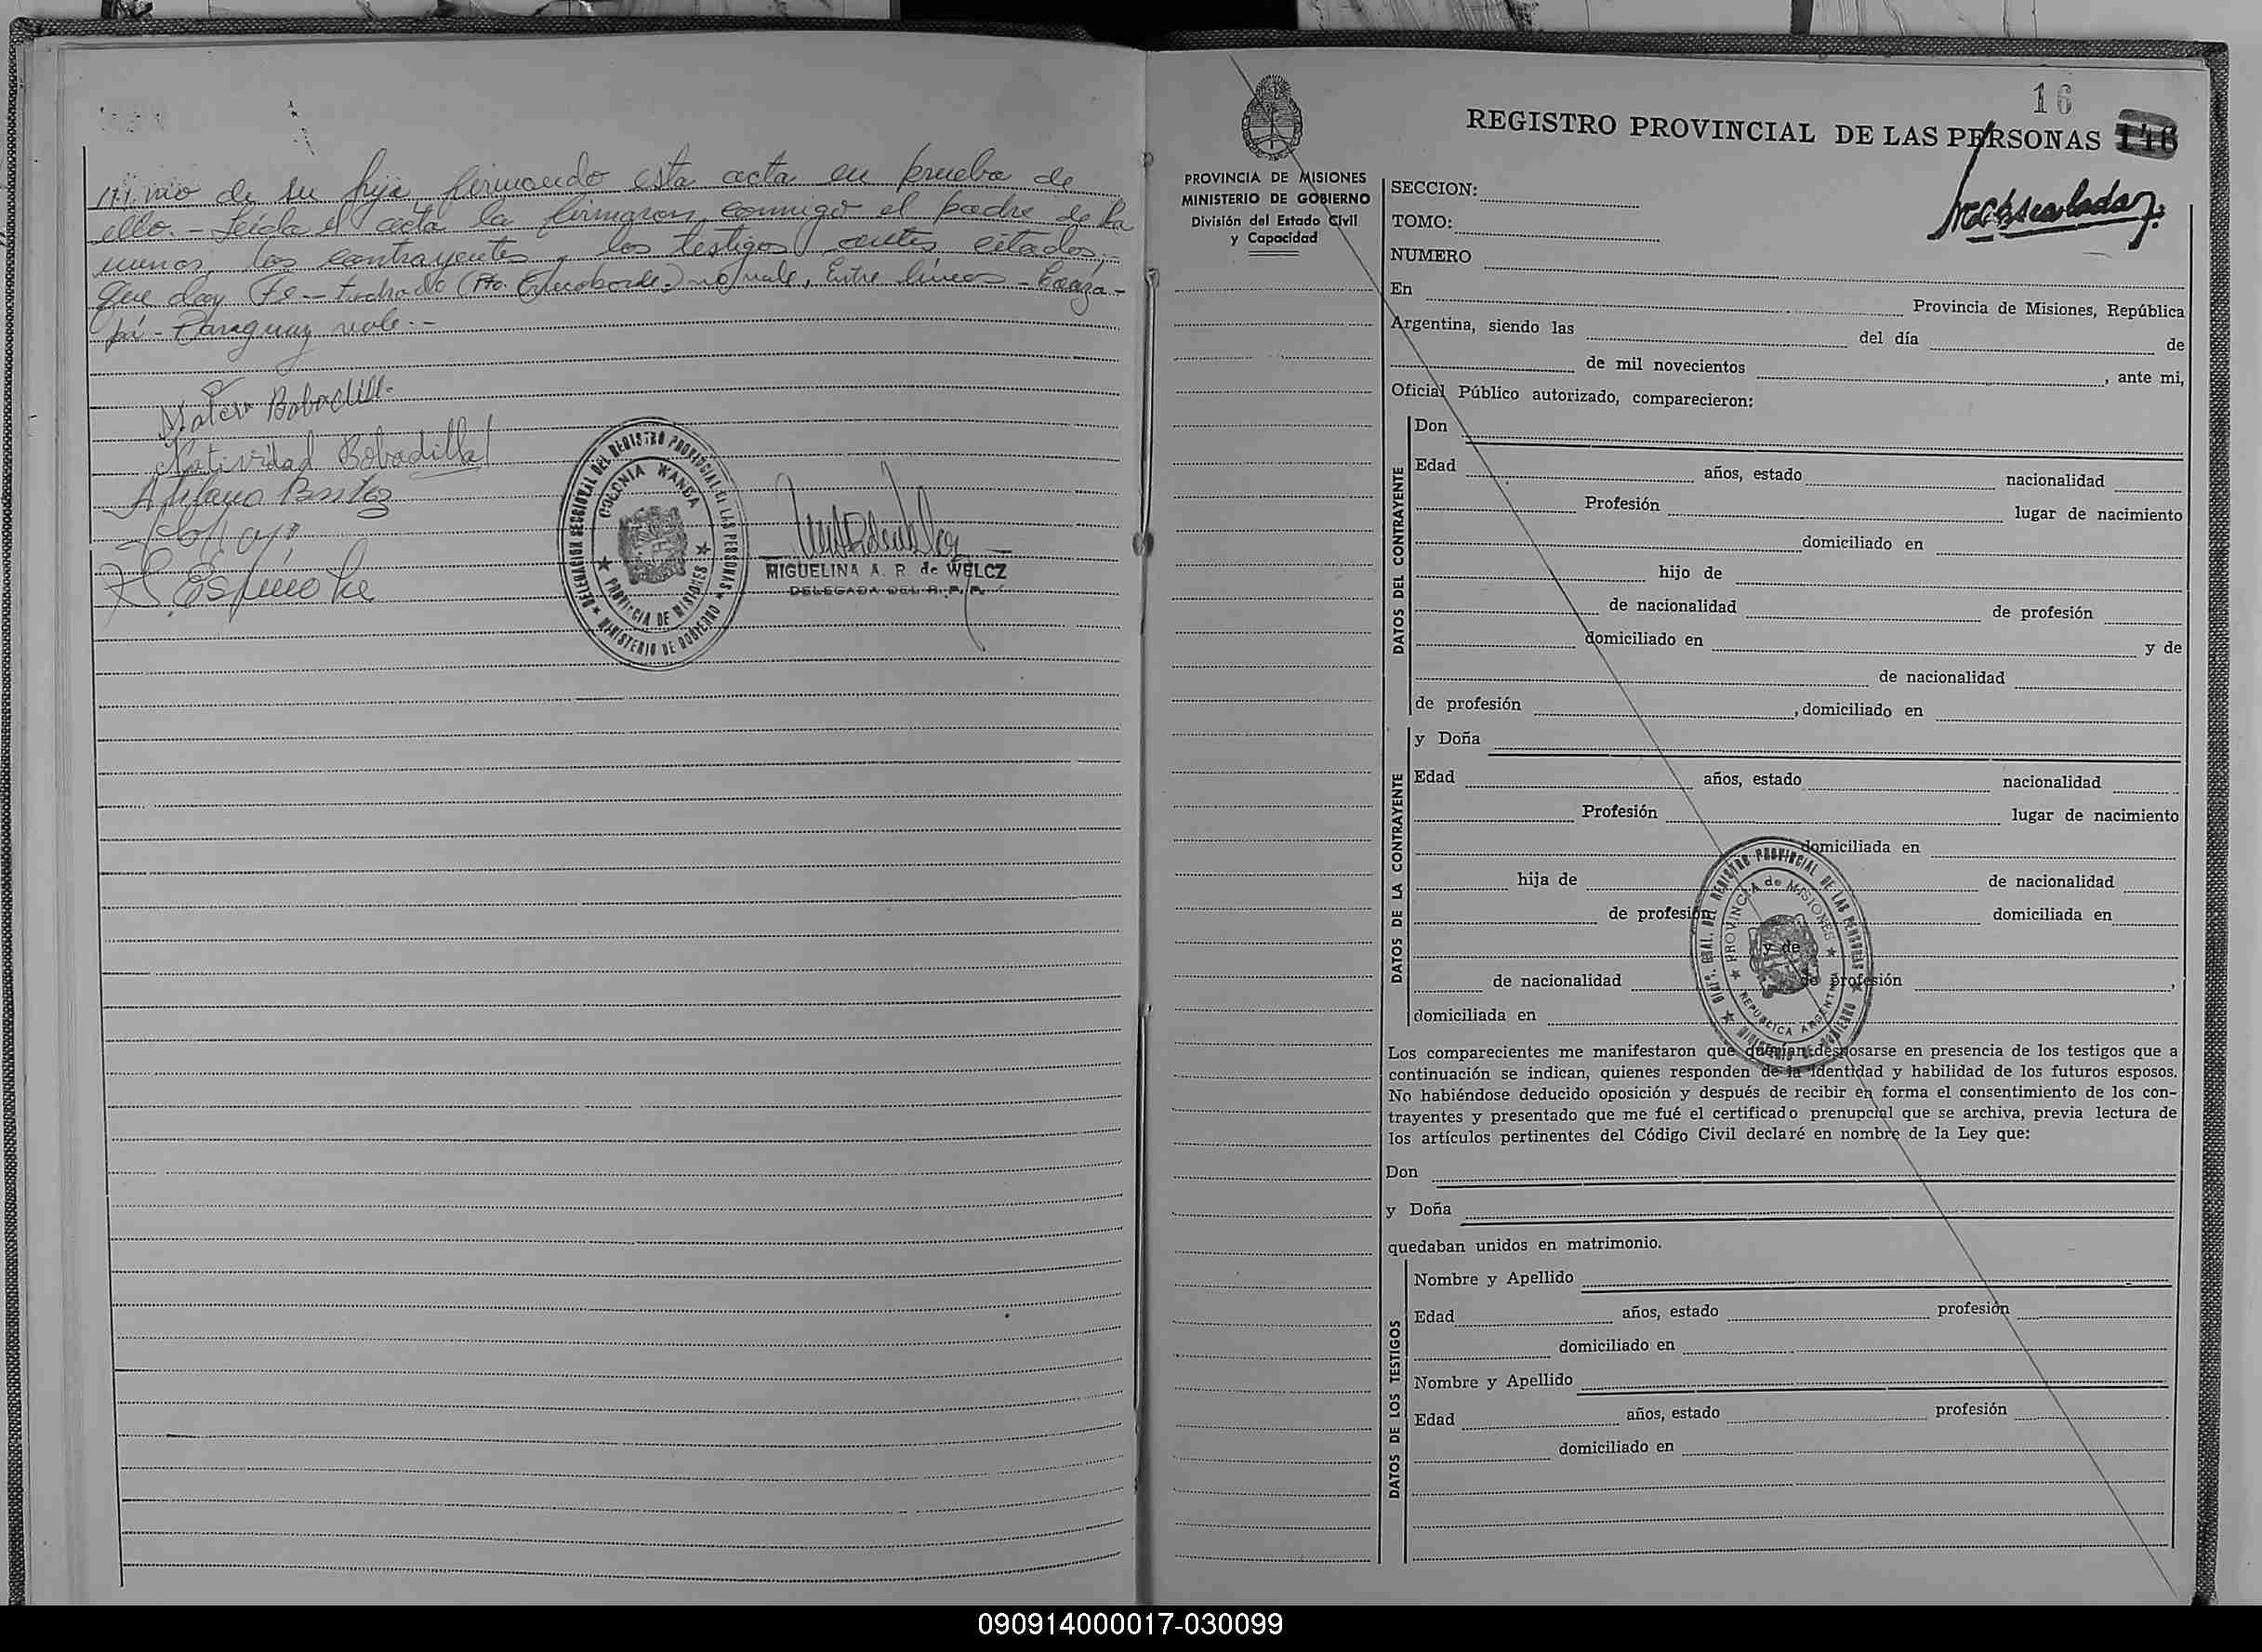 de su hija firmando esta acta en prueba de
ello.- Leída el acta la firmaron conmigo el padre de la
menor, los contrayentes y los testigos antes citados,-
que doy Fe.- Tachado (Pto. ) no vale, Entre líneas - Caaza-
pá - Paraguay vale.-
Bobadilla
Natividad Bobadilla
Benitez
Espinola
DELEGACION SECCIONAL DEL REGISTRO PROVINCIAL DE LAS PERSONAS
MINISTERIO DE GOBIERNO
COLONIA WANDA
PROVINCIA DE MISIONES
MIGUELINA A. R. de WELCZ
DELEGADA DEL R. P. P.
16
REGISTRO PROVINCIAL DE LAS PERSONAS 146
PROVINCIA DE MISIONES
MINISTERIO DE GOBIERNO
División del Estado Civil
y Capacidad
SECCION:
TOMO:
NUMERO
En Provincia de Misiones, República
Argentina, siendo las del día de
de mil novecientos , ante mi,
Oficial Público autorizado, comparecieron:
DATOS DEL CONTRAYENTE
Don
Edad años, estado nacionalidad
Profesión lugar de nacimiento
domiciliado en
hijo de
de nacionalidad de profesión
domiciliado en y de
de nacionalidad
de profesión , domiciliado en
DATOS DE LA CONTRAYENTE
y Doña
Edad años, estado nacionalidad
Profesión lugar de nacimiento
domiciliada en
hija de de nacionalidad
de profesión domiciliada en
y de
de nacionalidad de profesión ,
domiciliada en
DEL REGISTRO PROVINCIAL DE LAS PERSONAS
MINISTERIO DE GOBIERNO
PROVINCIA de MISIONES
REPUBLICA ARGENTINA
Los comparecientes me manifestaron que querían desposarse en presencia de los testigos que a
continuación se indican, quienes responden de la identidad y habilidad de los futuros esposos.
No habiéndose deducido oposición y después de recibir en forma el consentimiento de los con-
trayentes y presentado que me fué el certificado prenupcial que se archiva, previa lectura de
los artículos pertinentes del Código Civil declaré en nombre de la Ley que:
Don
y Doña
quedaban unidos en matrimonio.
DATOS DE LOS TESTIGOS
Nombre y Apellido
Edad años, estado profesión
domiciliado en
Nombre y Apellido
Edad años, estado profesión
domiciliado en
090914000017-030099